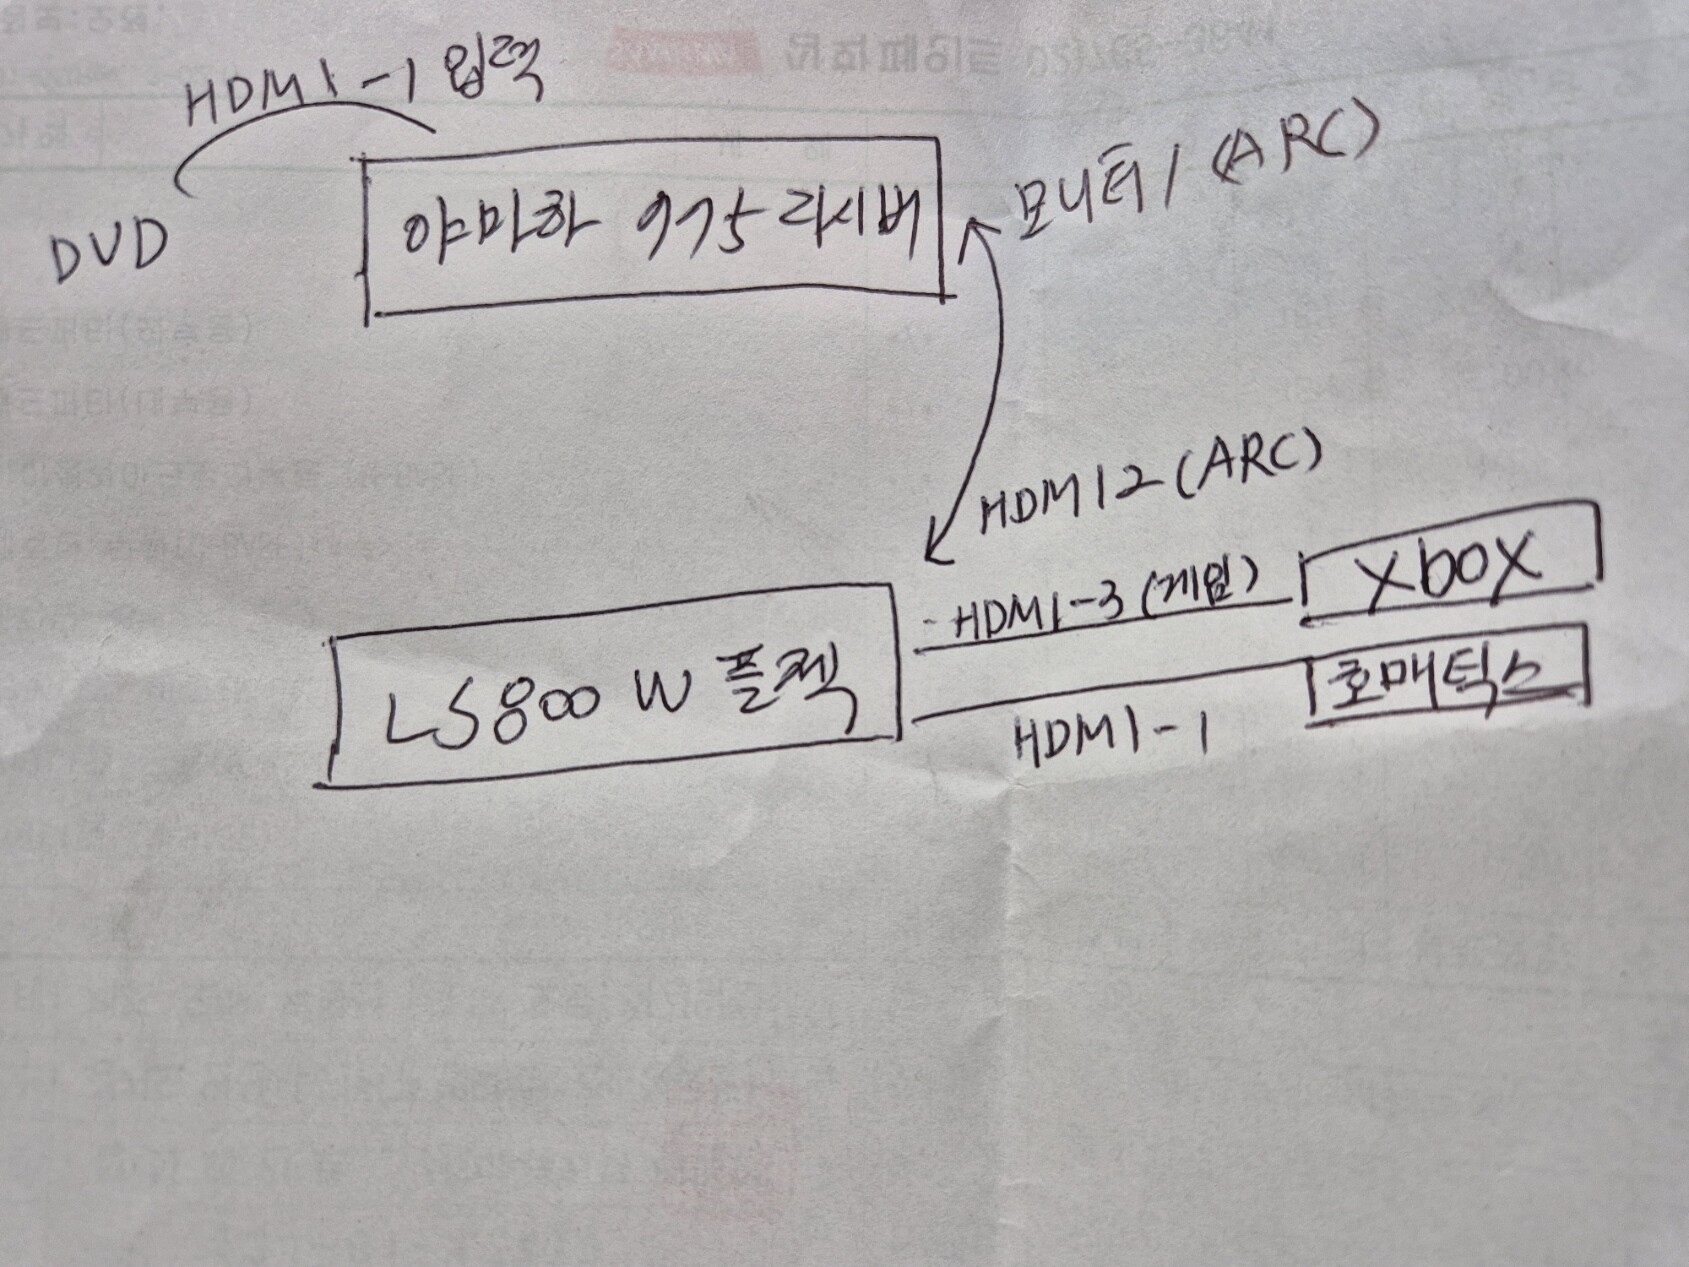 HDMI-1 입력
DVD
야마하 975 리시버
모니터 1 (ARC)
HDMI 2 (ARC)
HDMI-3 (게임)
Xbox
LS800W 플젝
호매틱스
HDMI-1